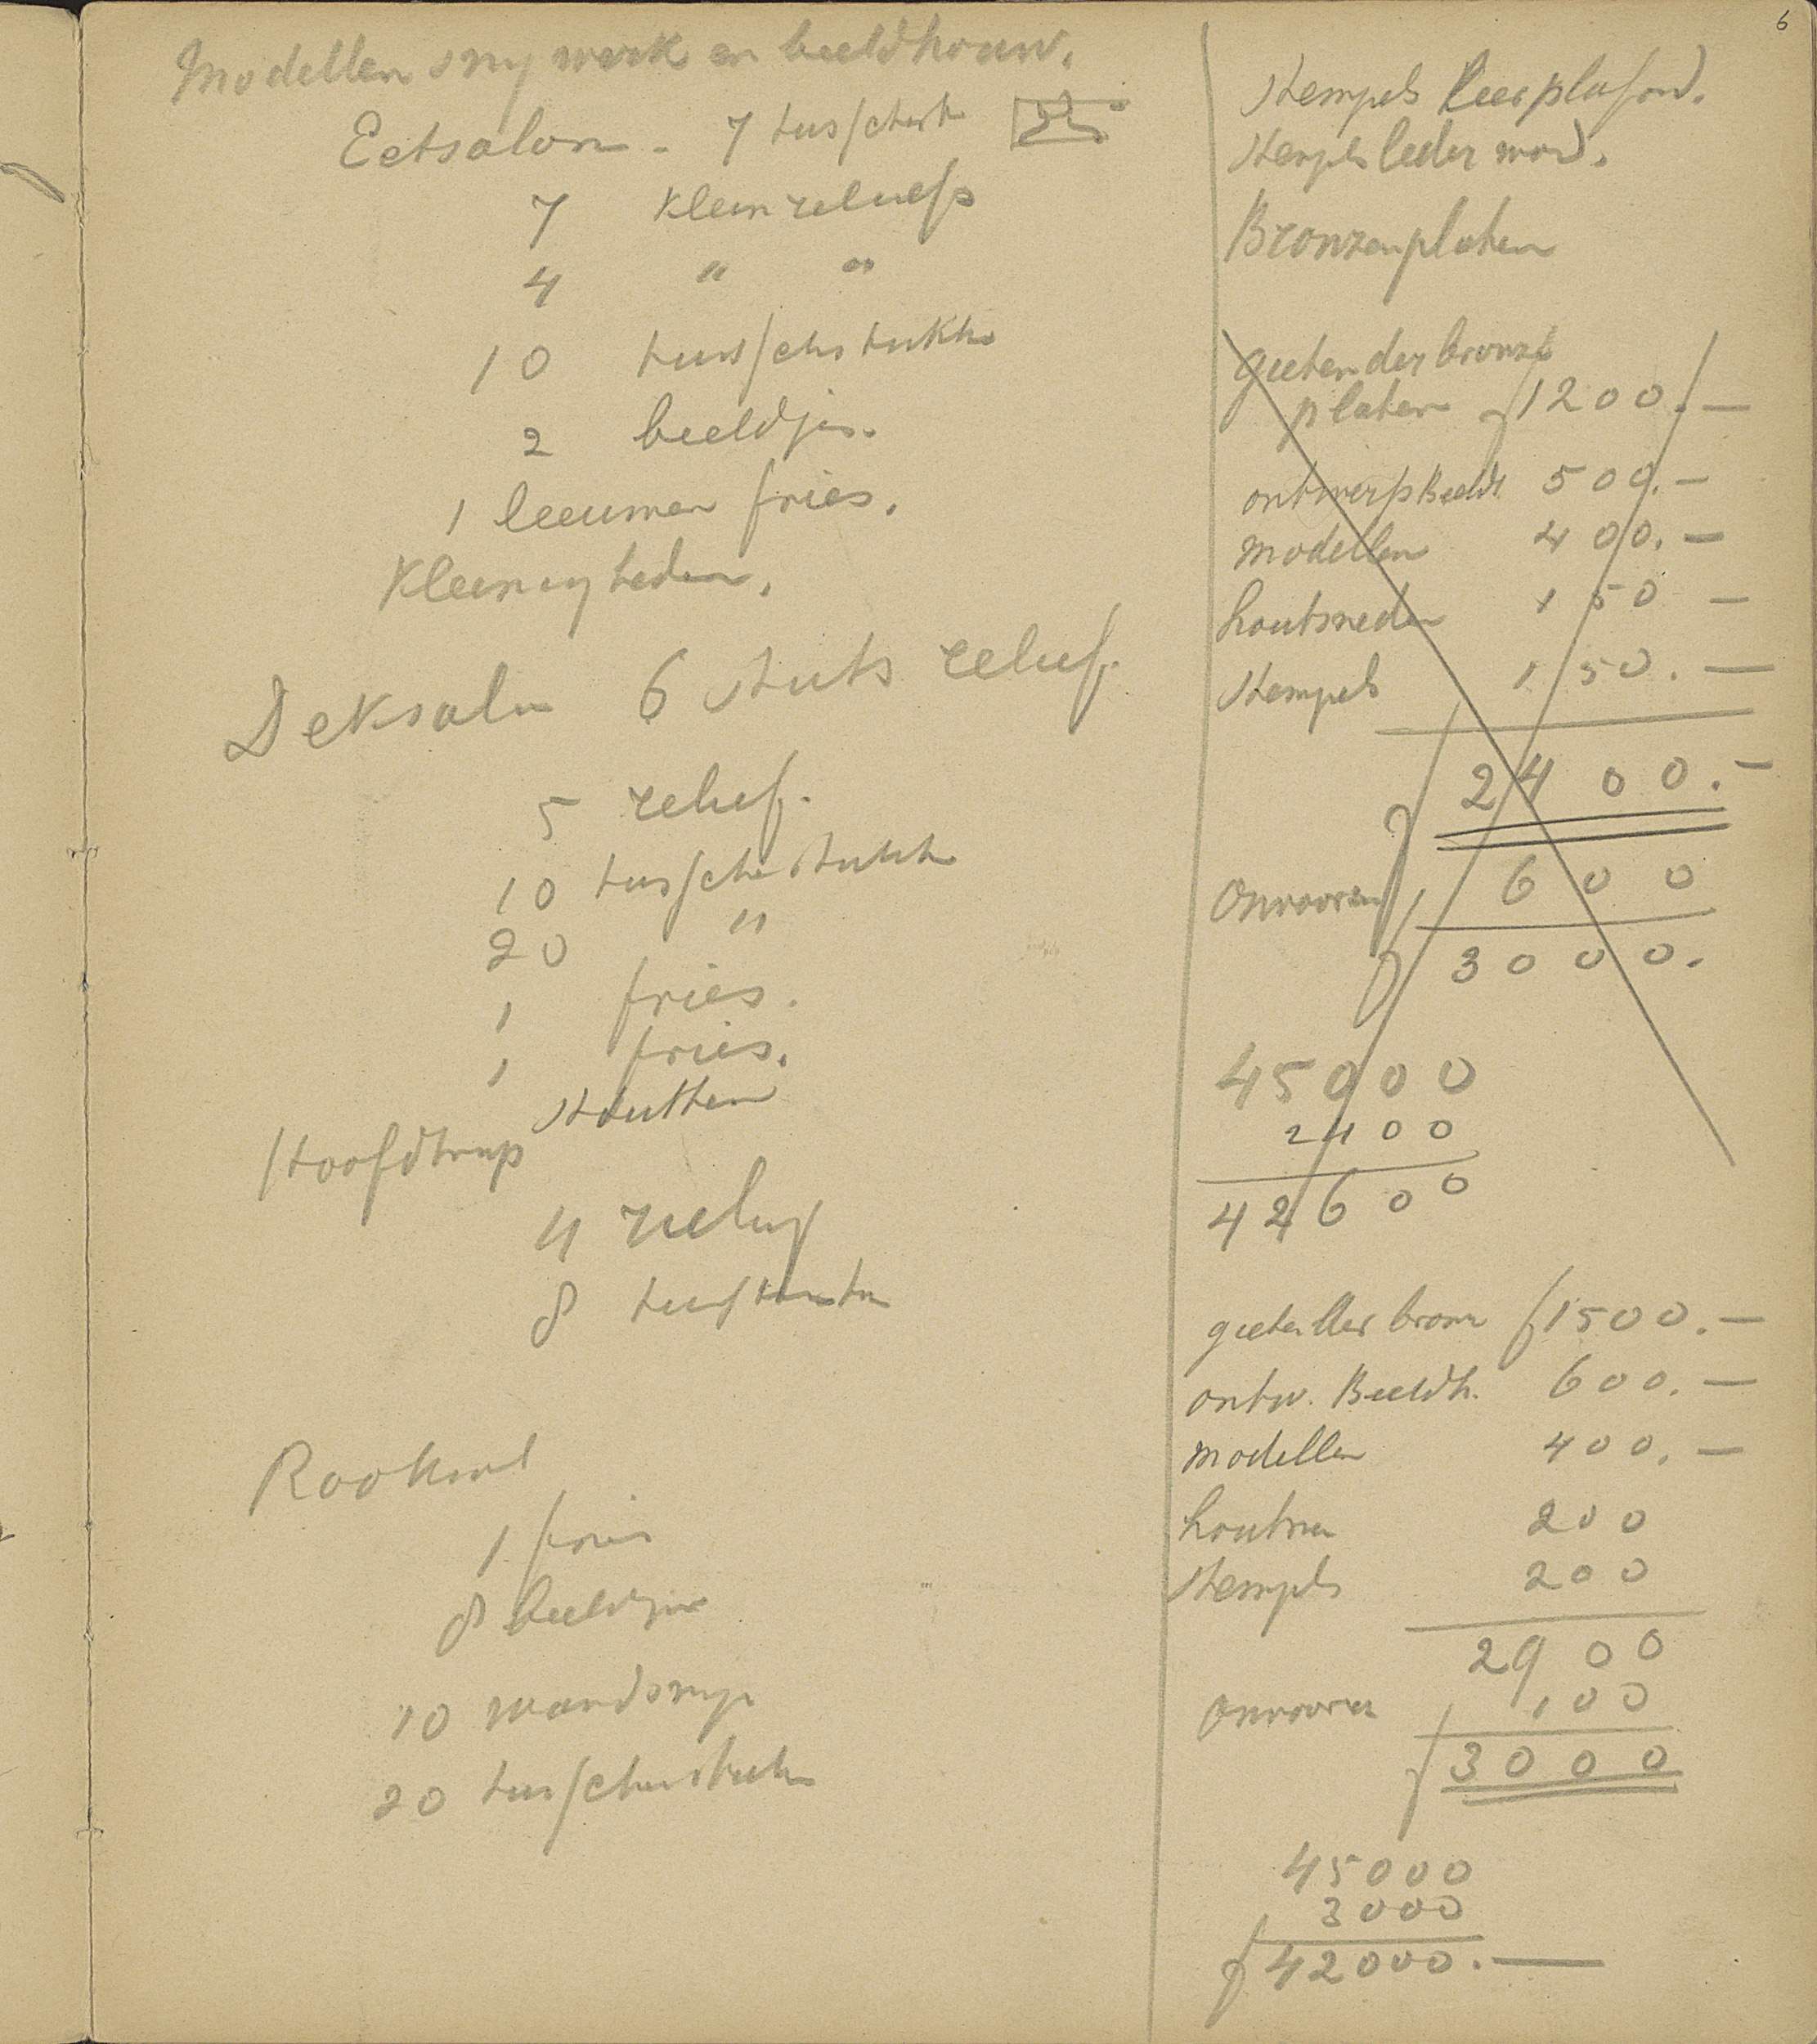 6
Modellen snywerk en beeldhouw.
Eetsalon - 7 tusschenst
7 Klein reliefs
4 " "
10 tusschstukken
2 beeldjes.
1 leeuwen fries.
Kleinigheden.
Deksalon 6 stuks relief.
5 relief.
10 tusschenstukken
20 "
1 fries.
1 fries.
stukken
Hoofdtrap
4 relief
8
Rooksal
1 fries
8 beeldjes
10 wandsny
20 tusschenstukken
Stempels leerplafond.
Stempels leder wand.
Bronzenplaten
gieten der bronze
platen f 1200.—
ontwerps Beeldh. 500.—
modellen 400.—
houtsneden 150 —
Stempels 150.—
f 2400.—
Onvooren f 600
f 3000.
45000
2400
42600
gieten der brons f 1500.—
ontw. Beeldh. 600.—
modellen 400.—
houtsn 200
Stempels 200
2900
Onvooren 100
f 3000
45000
3000
f 42000.—